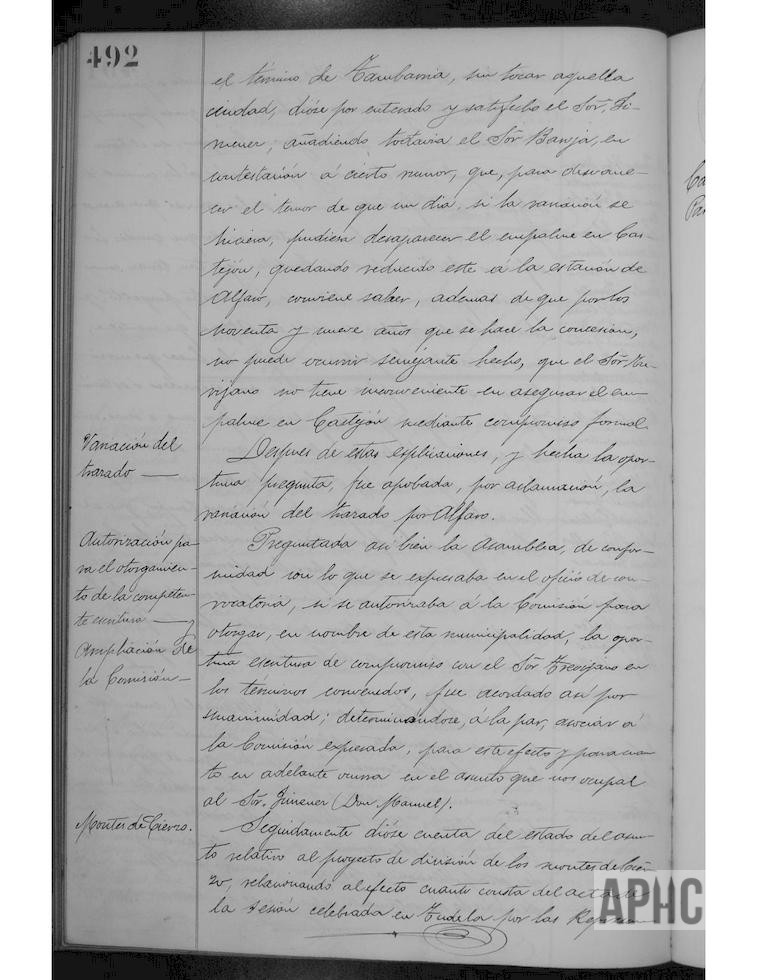 492
el término de Tambarria, sin tocar aquella
ciudad, dióse por enterado y satisfecho el Sor. Ji-
menez; añadiendo todavia el Sor Barija, en
contestación á cierto rumor, que, para desvane-
cer el temor de que un dia, si la variación se
hiciera, pudiera desaparecer el empalme en Cas-
tejón, quedando reducido este á la estación de
Alfaro, conviene saber, ademas de que por los
noventa y nueve años que se hace la concesión,
no puede ocurrir semejante hecho, que el Sor. Tre-
vijano no tiene inconveniente en asegurar el em-
palme en Castejón mediante compromiso formal.
Variación del
trazado —
Despues de estas esplicaciones, y hecha la opor-
tuna pregunta, fue aprobada, por aclamación, la
variación del trazado por Alfaro.
Autorización pa-
ra el otorgamien-
to de la competen-
te escritura — y
Ampliación de
la Comisión —
Preguntada asi bien la Asamblea, de confor-
midad con lo que se expresaba en el oficio de con-
vocatoria, si se autorizaba á la Comisión para
otorgar, en nombre de esta municipalidad, la opor-
tuna escritura de compromiso con el Sor Trevijano en
los términos convenidos, fue acordado asi por
unanimidad; determinándose, á la par, asociar á
la Comisión expresada, para este efecto y para cuan-
to en adelante ocurra en el asunto que nos ocupa,
al Sor. Jimenez (Don Manuel).
Montes de Cierzo.
Seguidamente dióse cuenta del estado del asun-
to relativo al proyecto de división de los montes de Cier-
zo, relacionando al efecto cuanto consta del acta de
la sesión celebrada en Tudela por las Represen-
APHC